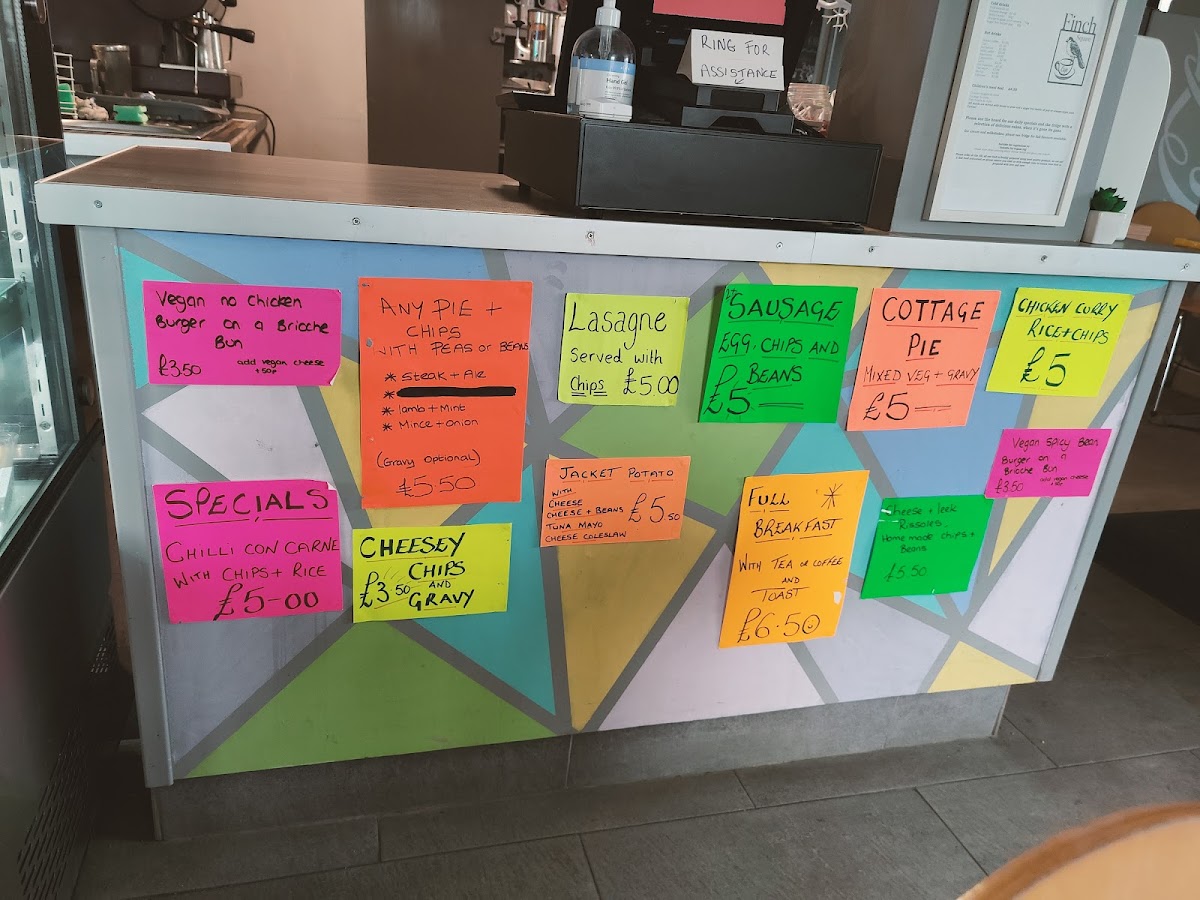 RING FOR
ASSISTANCE
Hand Gel
Finch
Vegan no Chicken
Burger on a Brioche
Bun
£3.50
add vegan cheese
+50p
ANY PIE +
CHIPS
WITH PEAS or BEANS
* Steak + Ale
*
* lamb + Mint
* Mince + onion
(Gravy Optional)
£5.50
Lasagne
Served with
Chips £5.00
SAUSAGE
EGG, CHIPS AND
BEANS
£5
COTTAGE
PIE
MIXED VEG + GRAVY
£5
CHICKEN CURRY
RICE + CHIPS
£5
SPECIALS
CHILLI CON CARNE
WITH CHIPS + RICE
£5-00
CHEESEY
CHIPS
AND
GRAVY
£3.50
JACKET POTATO
WITH
CHEESE
CHEESE + BEANS
TUNA MAYO
CHEESE COLESLAW
£5.50
FULL *
BREAKFAST
WITH TEA OR COFFEE
AND
TOAST
£6.50
Cheese + leek
Rissoles,
Homemade chips +
Beans
£5.50
Vegan Spicy Bean
Burger on a
Brioche Bun
£3.50
add vegan cheese
+50p